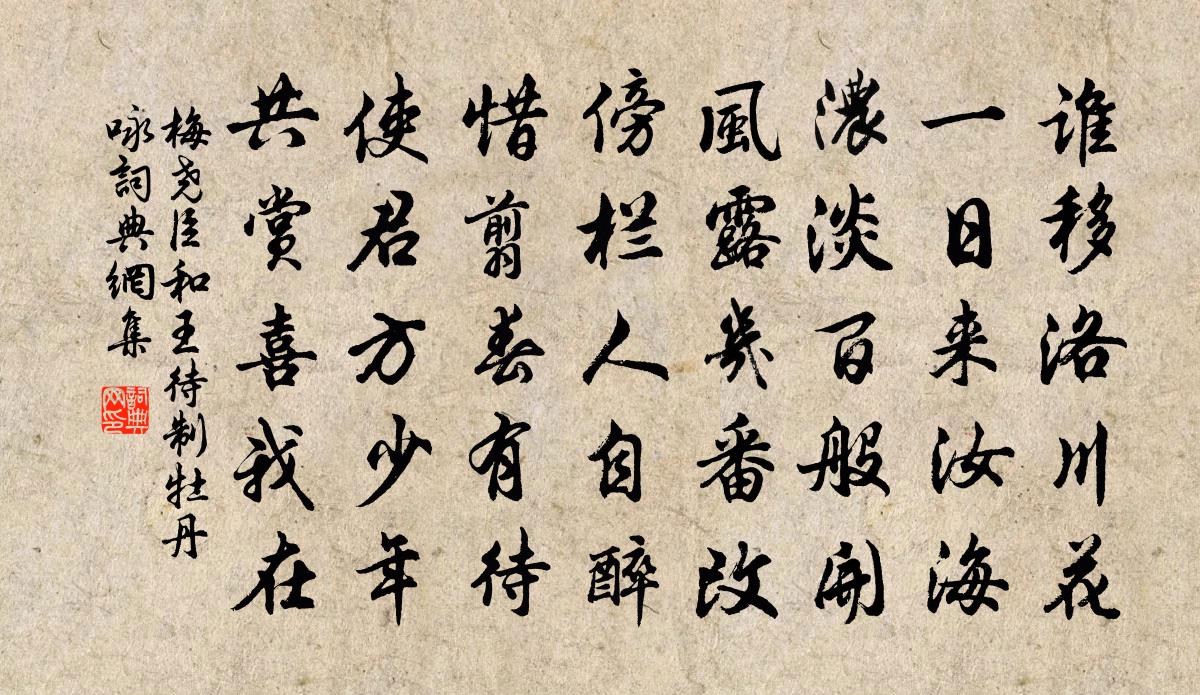 誰移洛川花
一日来汝海
濃淡百般開
風露幾番改
傍栏人自醉
惜剪春有待
使君方少年
共賞喜我在
梅尧臣和王待制牡丹
咏詞典網集
詞典
网印